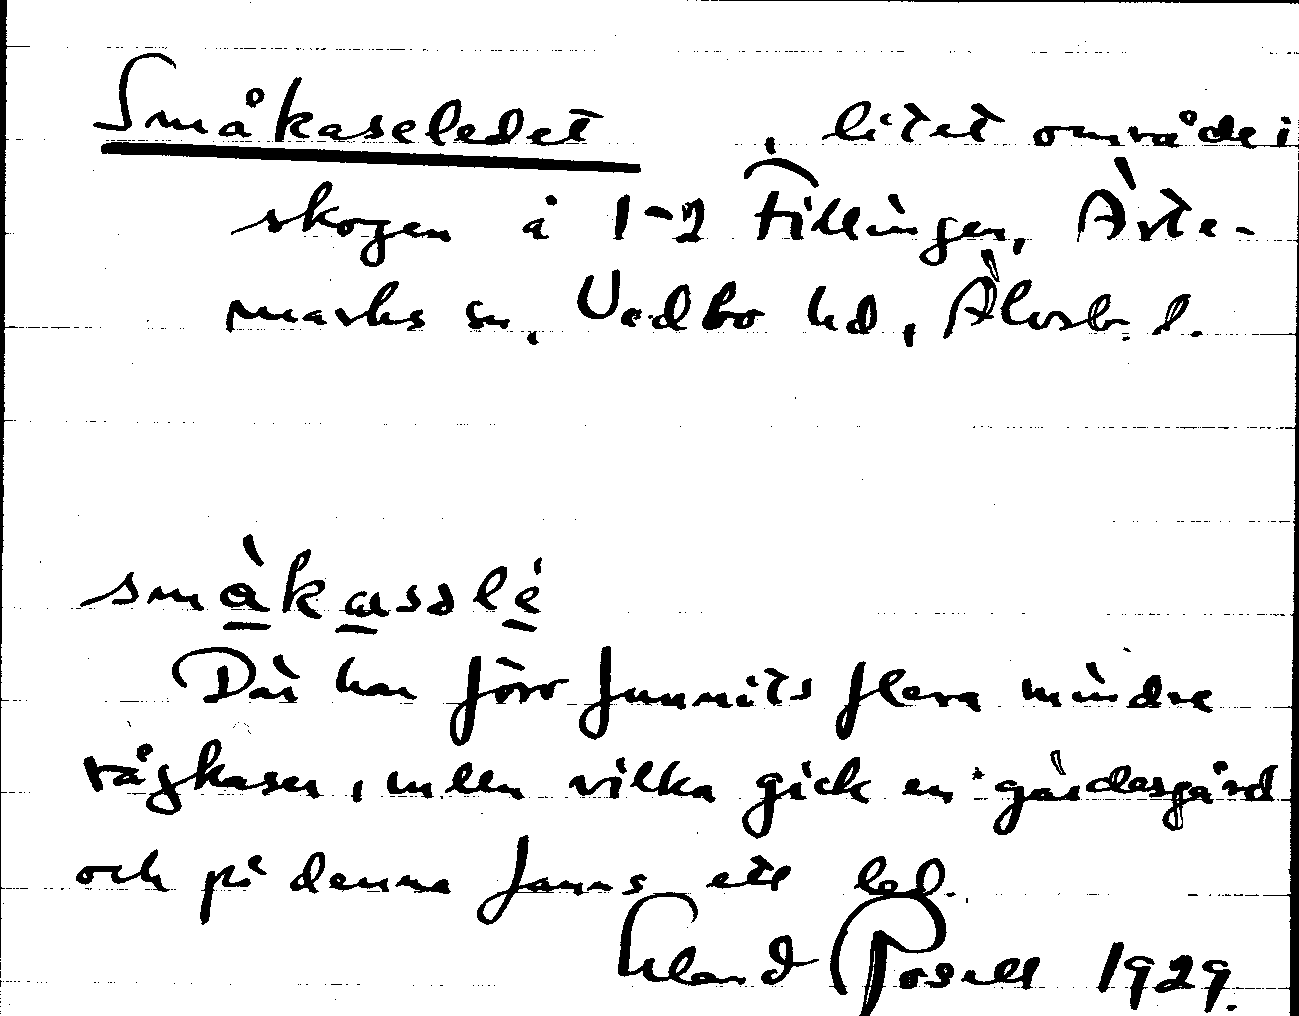 Småkaseledet, litet område i
skogen å 1-2 Fillingen, Ärte-
marks sn, Vedbo hd, Älvsb. l.
småkassle
Där har förr funnits flera mindre
rågkaser, mellan vilka gick en gärdesgård
och på denna fanns ett led.
Erland Rosell 1929.